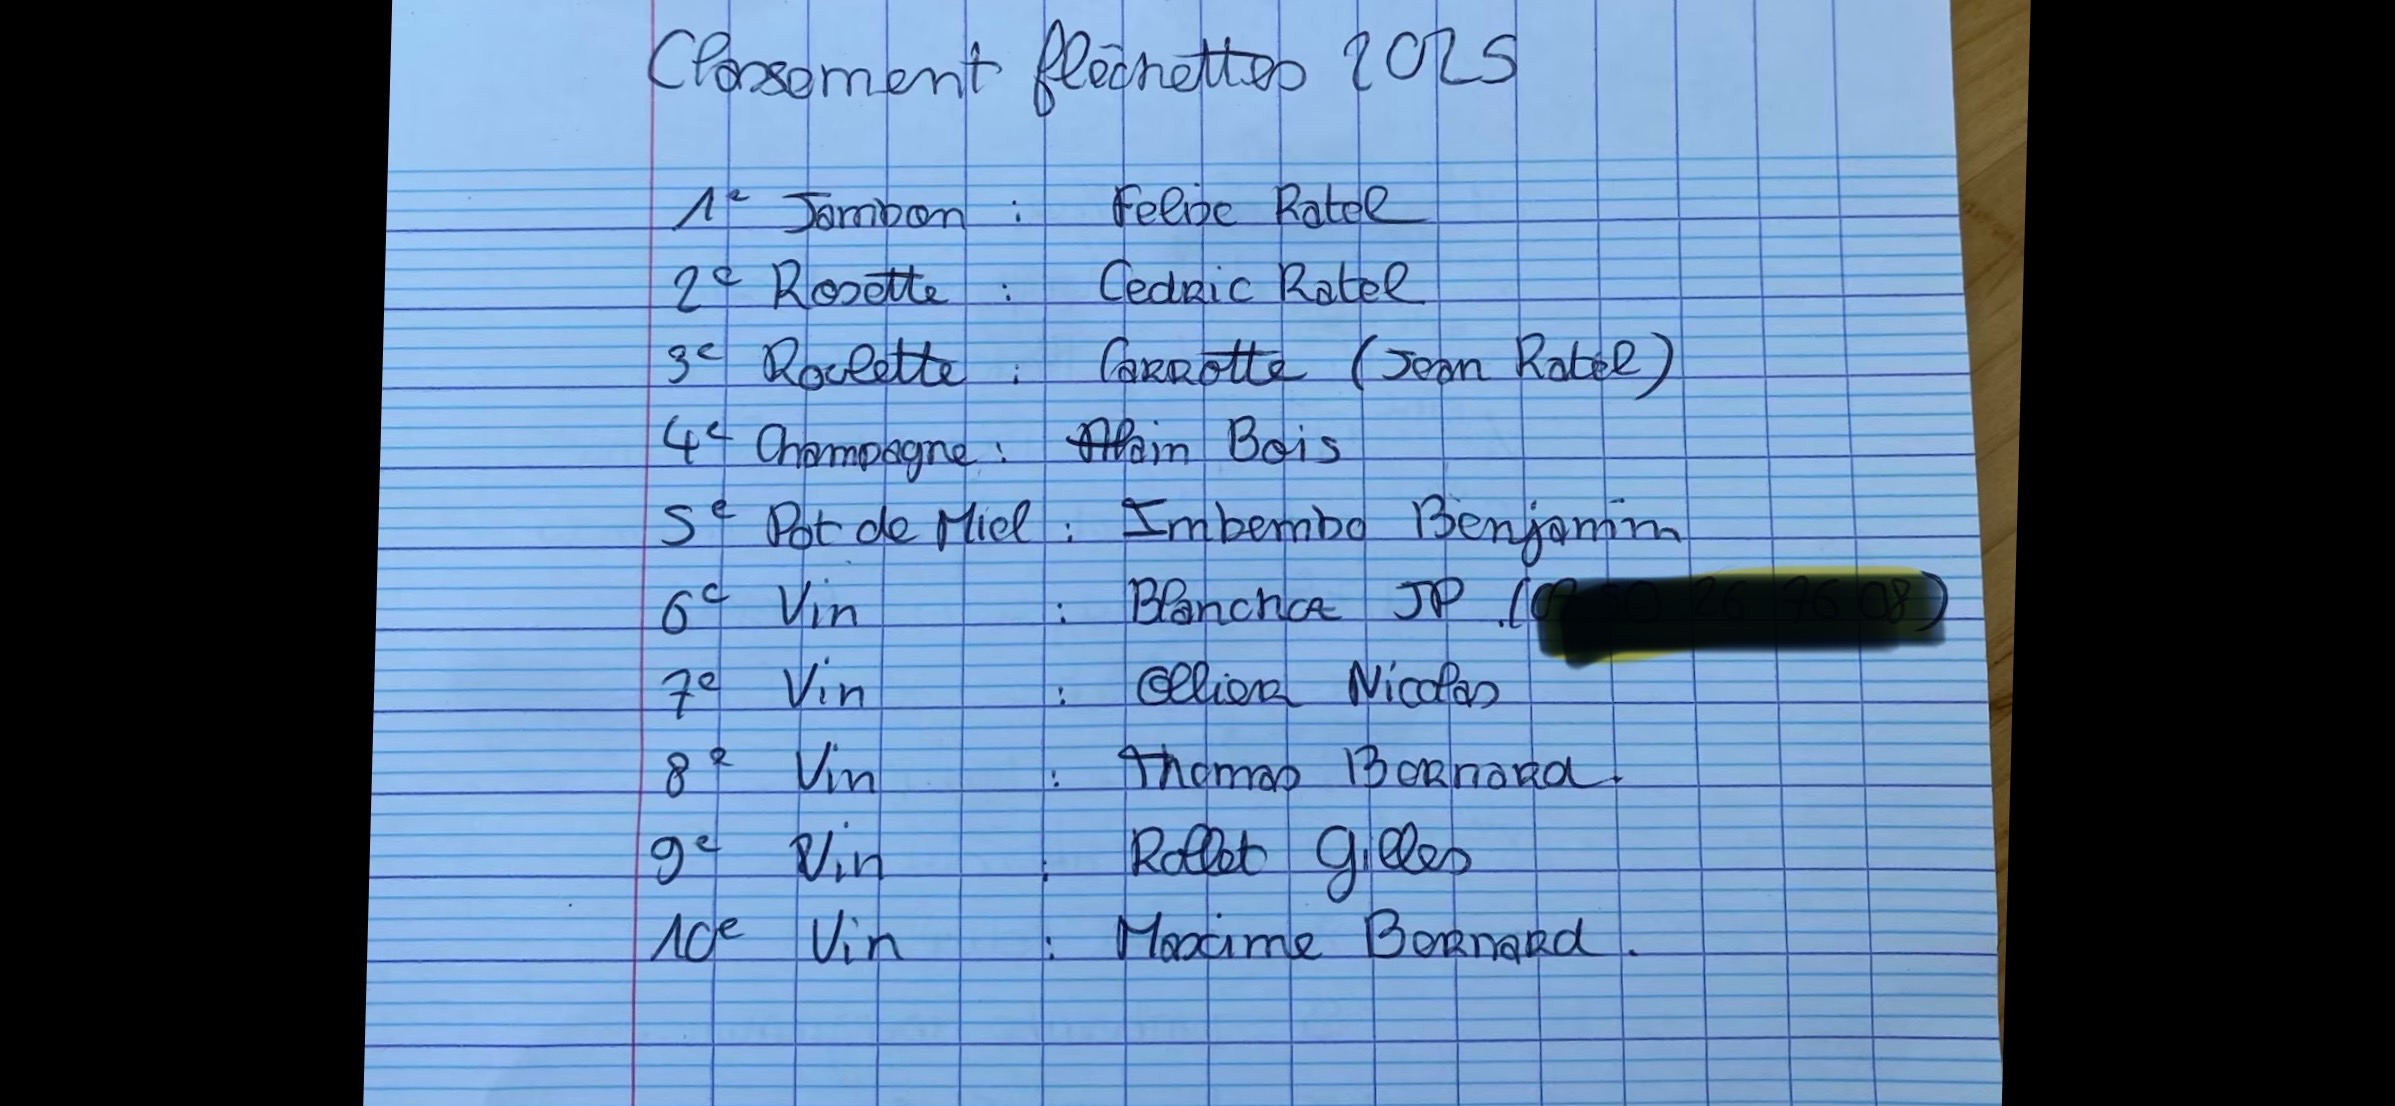 Classement flèchettes 2025
1e Jambon : Felipe Ratel
2e Rosette : Cedric Ratel
3e Roulette : Carrotte (Jean Ratel)
4e Champagne : Alain Bois
5e Pot de Miel : Imbembo Benjamin
6e Vin : Blanchce JP
7e Vin : Ollier Nicolas
8e Vin : Thomas Bernard.
9e Vin : Rollet Gilles
10e Vin : Maxime Bernard.